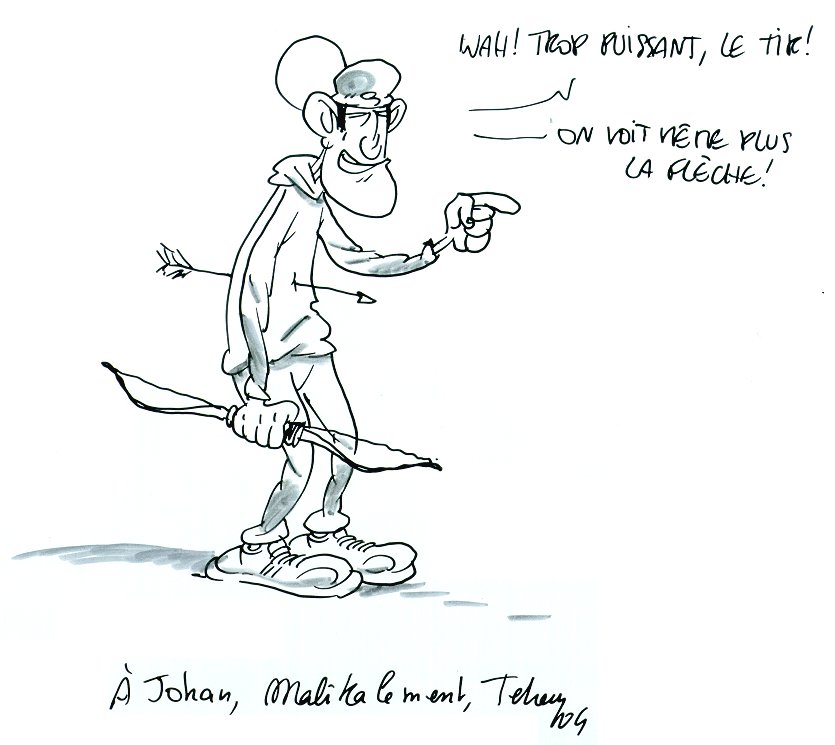 WAH! TROP PUISSANT, LE TIR!
ON VOIT MÊME PLUS
LA FLÈCHE!
À Johan, Malikalement, Tehem